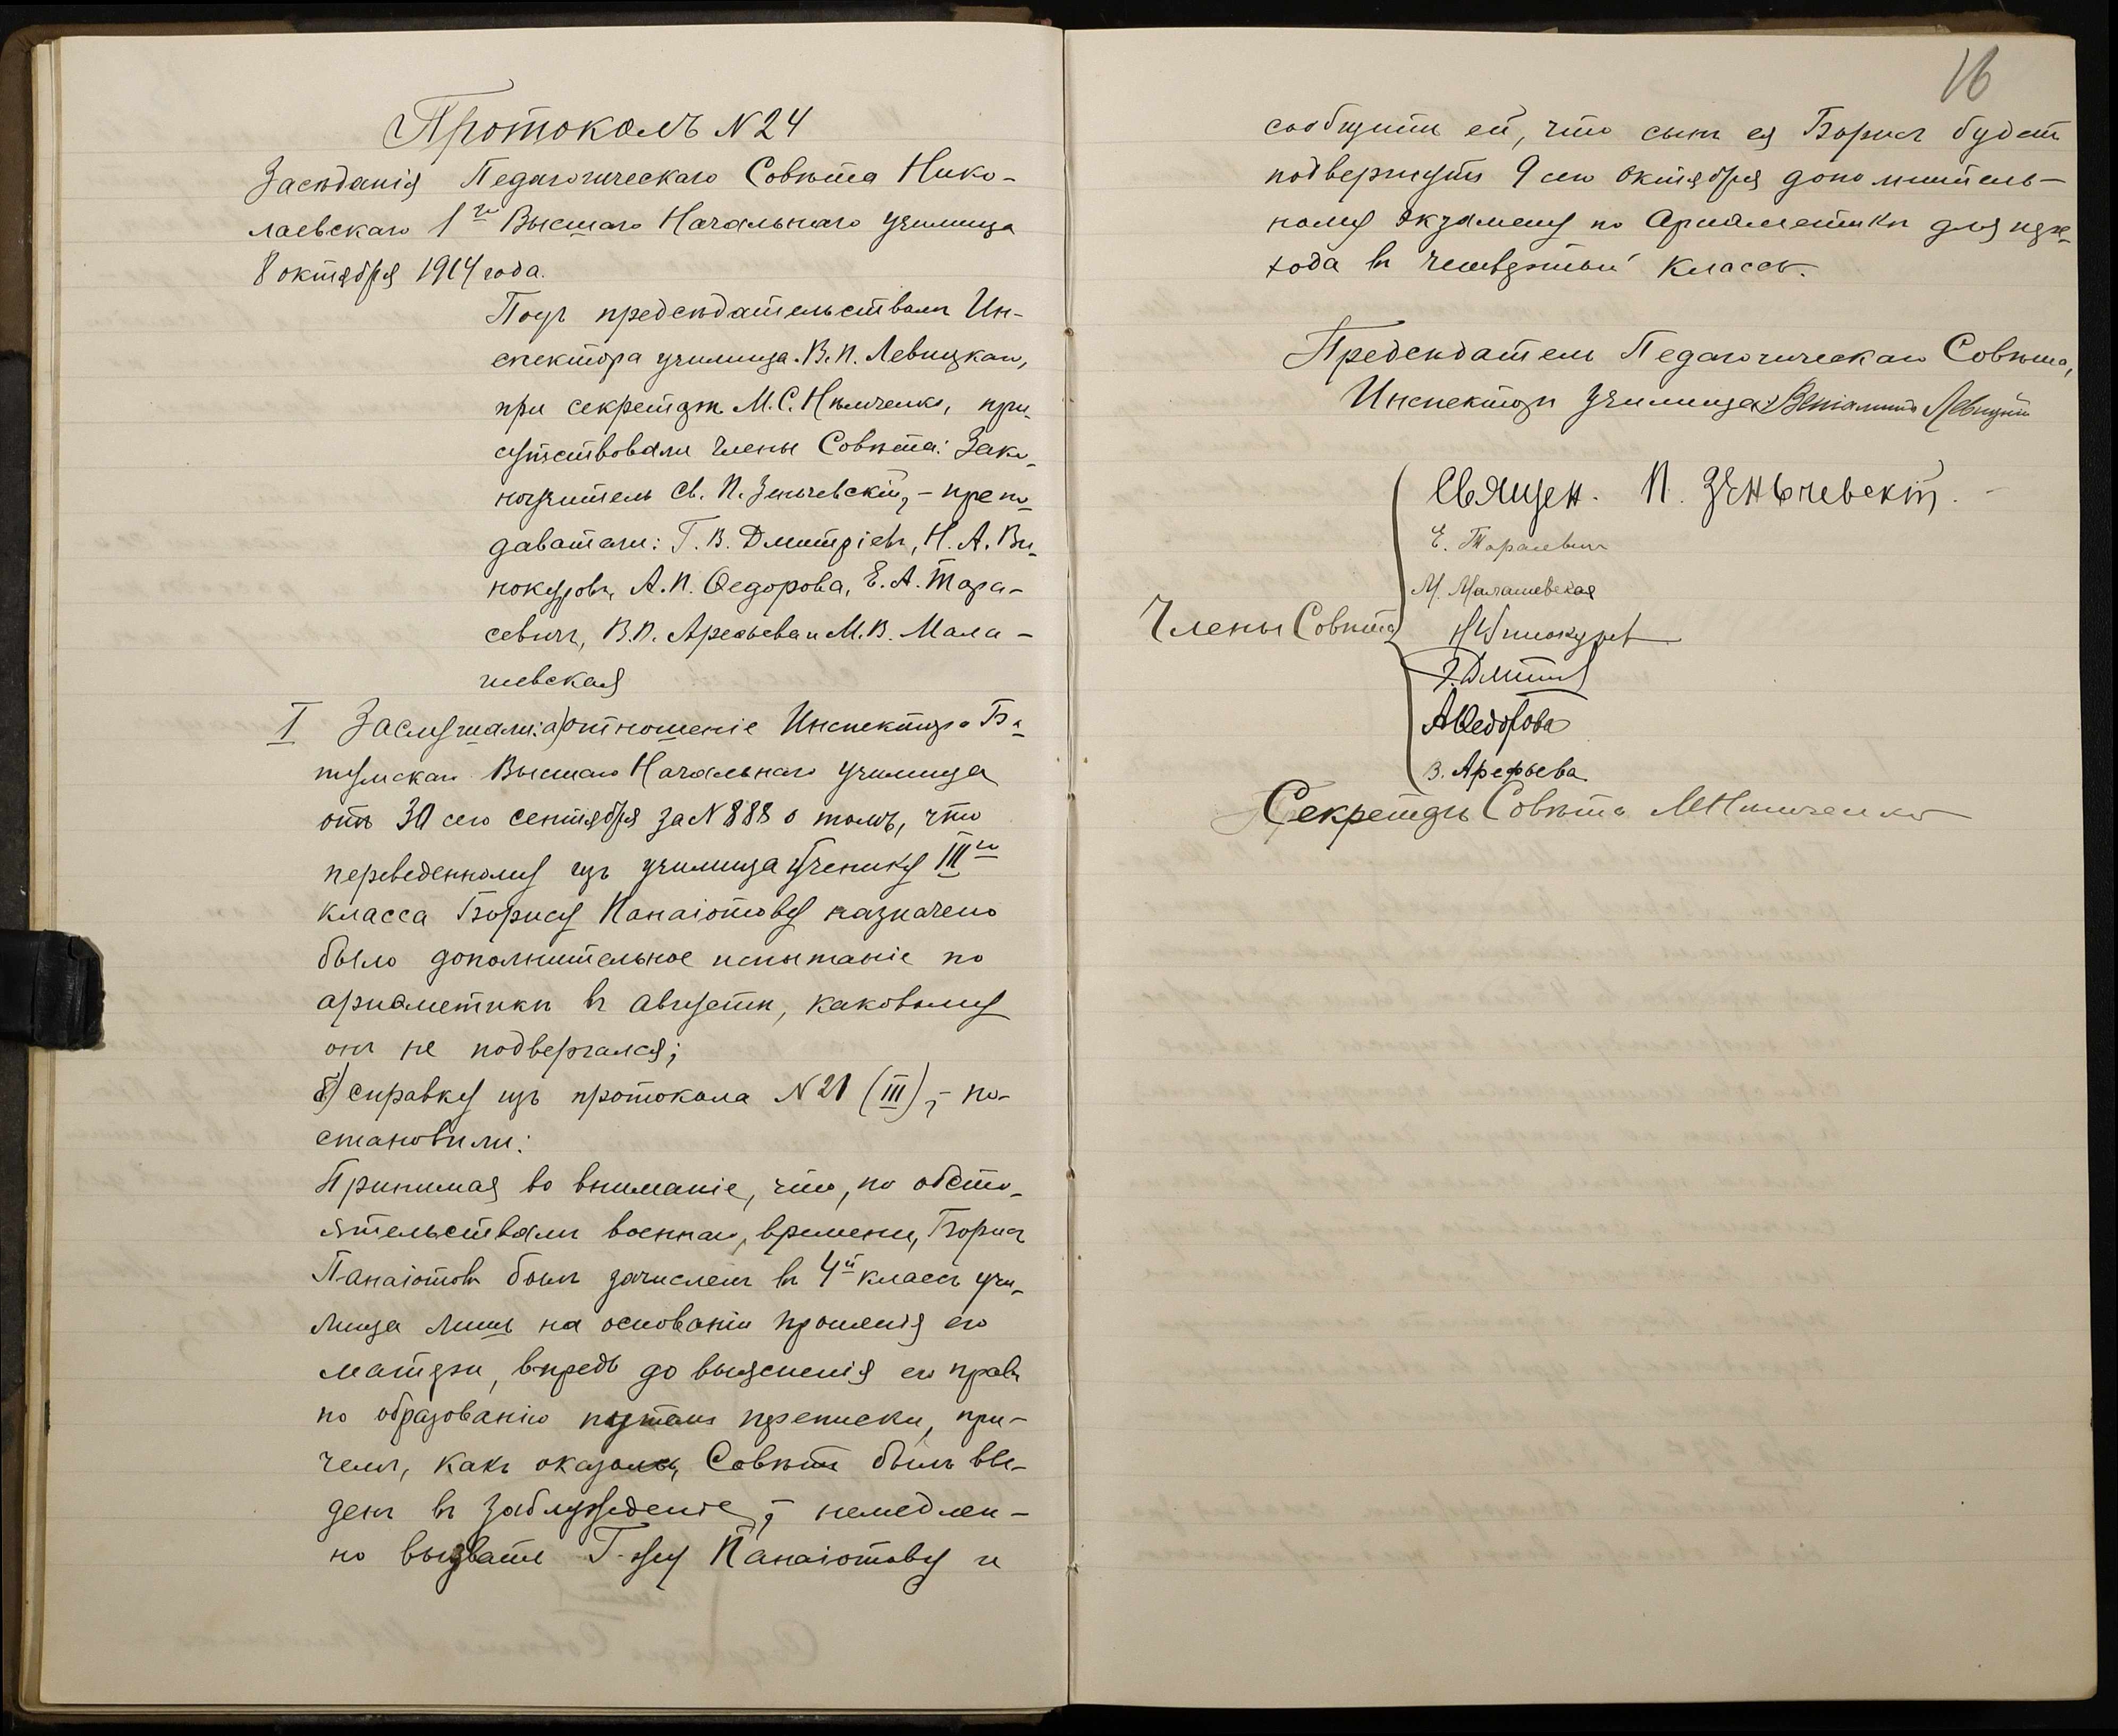 Протоколъ № 24
Засѣданія Педагогическаго Совѣта Нико-
лаевскаго 1го Высшаго Начальнаго училища
8 октября 1914 года.
Подъ предсѣдательствомъ Ин-
спектора училища В. П. Левицкаго,
при секретарѣ М. С. Нѣмченко, при-
сутствовали члены Совѣта: Зако-
ноучитель св. П. Зеньчевскій, - препо-
даватели: Г. В. Дмитріевъ, Н. А. Ви-
нокуровъ, А. П. Ѳедорова, Е. А. Тара-
севичъ, В. П. Арефьева и М. В. Мала-
шевская
I Заслушали: а) отношеніе Инспектора Ба-
тумскаго Высшаго Начальнаго училища
отъ 30 сего сентября за № 888 о томъ, что
переведенному изъ училища ученику IIIго
класса Борису Панаіотову назначено
было дополнительное испытаніе по
ариѳметикѣ въ августѣ, каковому
онъ не подвергался;
б) справку изъ протокола № 21 (III), - по-
становили:
Принимая во вниманіе, что, по обсто-
ятельствамъ военнаго времени, Борисъ
Панаіотовъ былъ зачисленъ въ 4й классъ учи-
лища лишь на основаніи прошенія его
матери, впредь до выясненія его правъ
по образованію путемъ переписки, при-
чемъ, какъ оказалось, Совѣтъ былъ вве-
денъ въ заблужденіе, - немедлен-
но вызвать Г-жу Панаіотову и
16
сообщить ей, что сынъ ея Борисъ будетъ
подвергнутъ 9 сего Октября дополнитель-
ному экзамену по Ариѳметикѣ для пере-
хода въ четвертый классъ.
Предсѣдатель Педагогическаго Совѣта,
Инспекторъ училища Веніаминъ Левицкій
Священ. П. Зеньчевскій.
Е. Тарасевичъ
М. Малашевская
Члены Совѣта
Н Винокуровъ
Г. Дмитріевъ
А Ѳедорова
В. Арефьева
Секретарь Совѣта М Нѣмченко